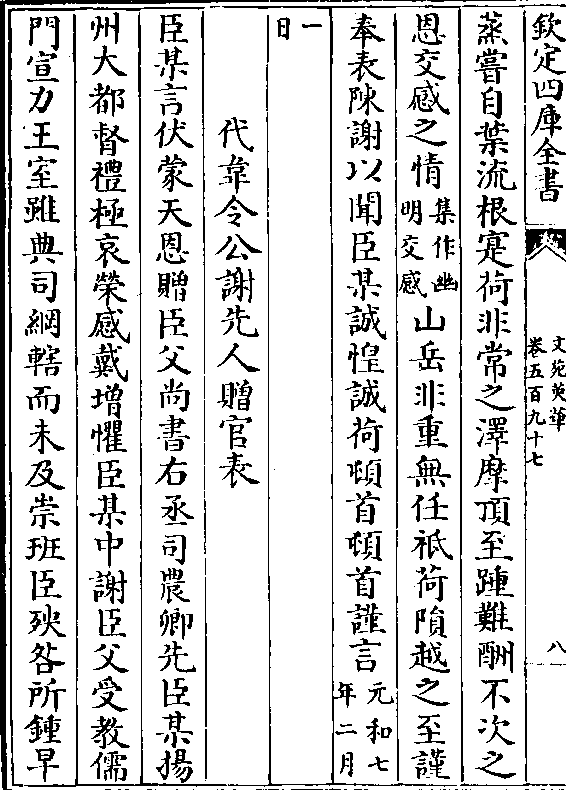 欽定四庫全書
文苑英華
卷五百九十七
八
蒸嘗自葉流根寔荷非常之澤摩頂至踵難酬不次之
恩交感之情集作幽明交感山岳非重無任祇荷隕越之至謹
奉表陳謝以聞臣某誠惶誠荷頓首頓首謹言元和七年二月
一日
代韋令公謝先人贈官表
臣某言伏蒙天恩贈臣父尚書右丞司農卿先臣某揚
州大都督禮極哀榮感戴增懼臣某中謝臣父受教儒
門宣力王室雖典司綱轄而未及崇班臣殃咎所鍾早